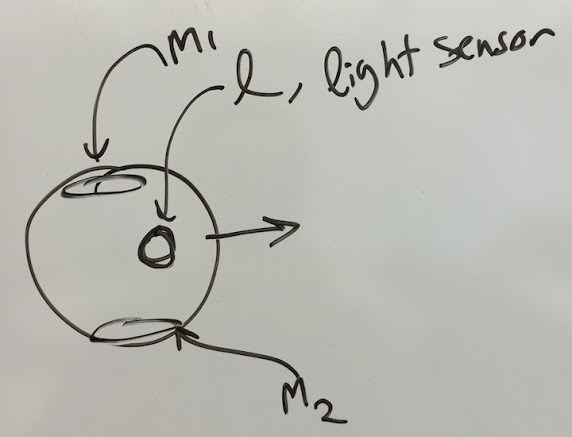 M1
l, light sensor
M2